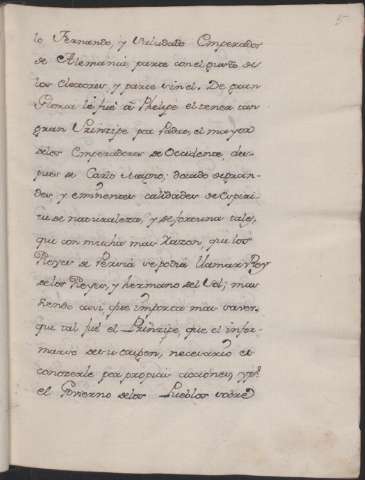 lo Fernando, y Saludado Emperador
de Alemania, parte con el gusto de
los Electores, y parte sin el. De gran
Gloria le fué à Phelipe el tener tan
gran Principe por Padre, el mayor
delos Emperadores de Occidente des-
pues de Carlo Magno; dotado de gran-
des, y eminentes calidades de Espiri-
tu de naturaleza, y de fortuna tales,
que con mucha mas razon, que los
Reyes de Persia se podia llamar Rey
delos Reyes, y hermano del Sol; mas
siendo assi que importa mas saver,
que tal fué el Principe, que el infor-
marse de su Campon, necesario es
conocerle por propias acciones, y pr.
el Govierno delos Pueblos sobre